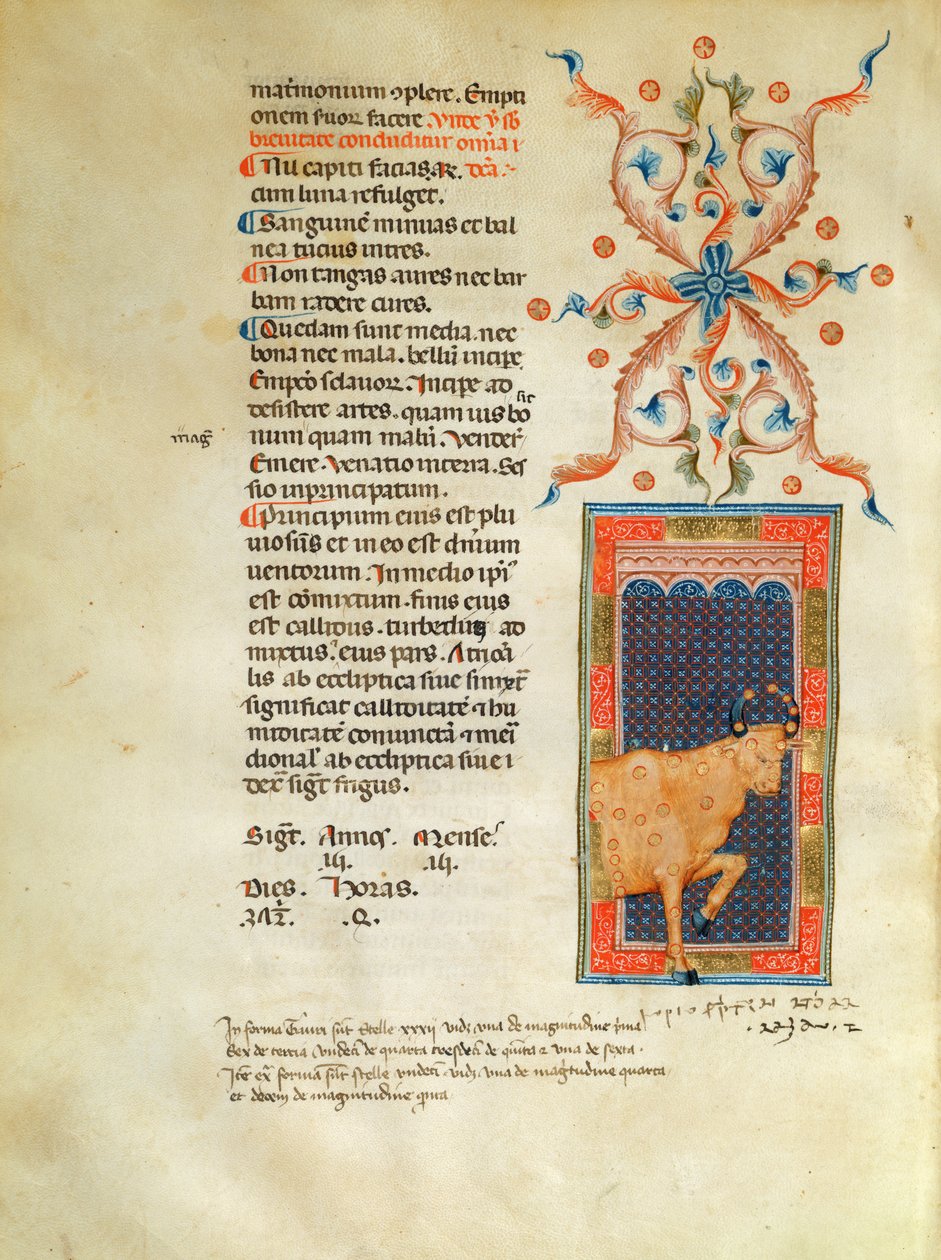 matrimonium ↄplere. Empti
onem suor᷑ facere
breuitate concluditur omia i
¶ Nil capiti facias. Ar̄.
cum luna refulget.
¶ Sanguinē minuas et bal
nea tucius intres.
¶ Non tangas aures nec bar
bam radere cures.
¶ Quedam sunt media. nec
bona nec mala. bellū incipe
Empcō sclauor᷑. Incipe ad
desistere artes. quam uis sit bo
num quam malū. Vender̄
mag̅
Emere. Venatio in terra. Ses
sio in principatum.
¶ Principium eius est plu
uiosū᷑s et in eo est dn̄ium
uentorum. In medio ip̄i᷑
est cōmixtum. finis eius
est callidus. turbedūs ad
mixtus. eius pars. A
lis ab eccliptica siue
significat calliditatē ⁊ hu
miditatē coniunctā ⁊ meri
dional᷑ ab eccliptica siue i
dex̄ sig̅t frigus.
Sig̅t. Annos. Mense᷑.
.iij. .iij.
Dies. Horas.
In forma Tauri sūt stelle xxxij vidꝫ vna de magnitudine p̄ma
Sex de tercia vndeci de quarta tresdeci de quīta ⁊ vna de sexta.
Itē ex̄ formā sūt stelle vndeci vidꝫ vna de mag̅tudine quarta
et decem de magnitudine qⁱnta.